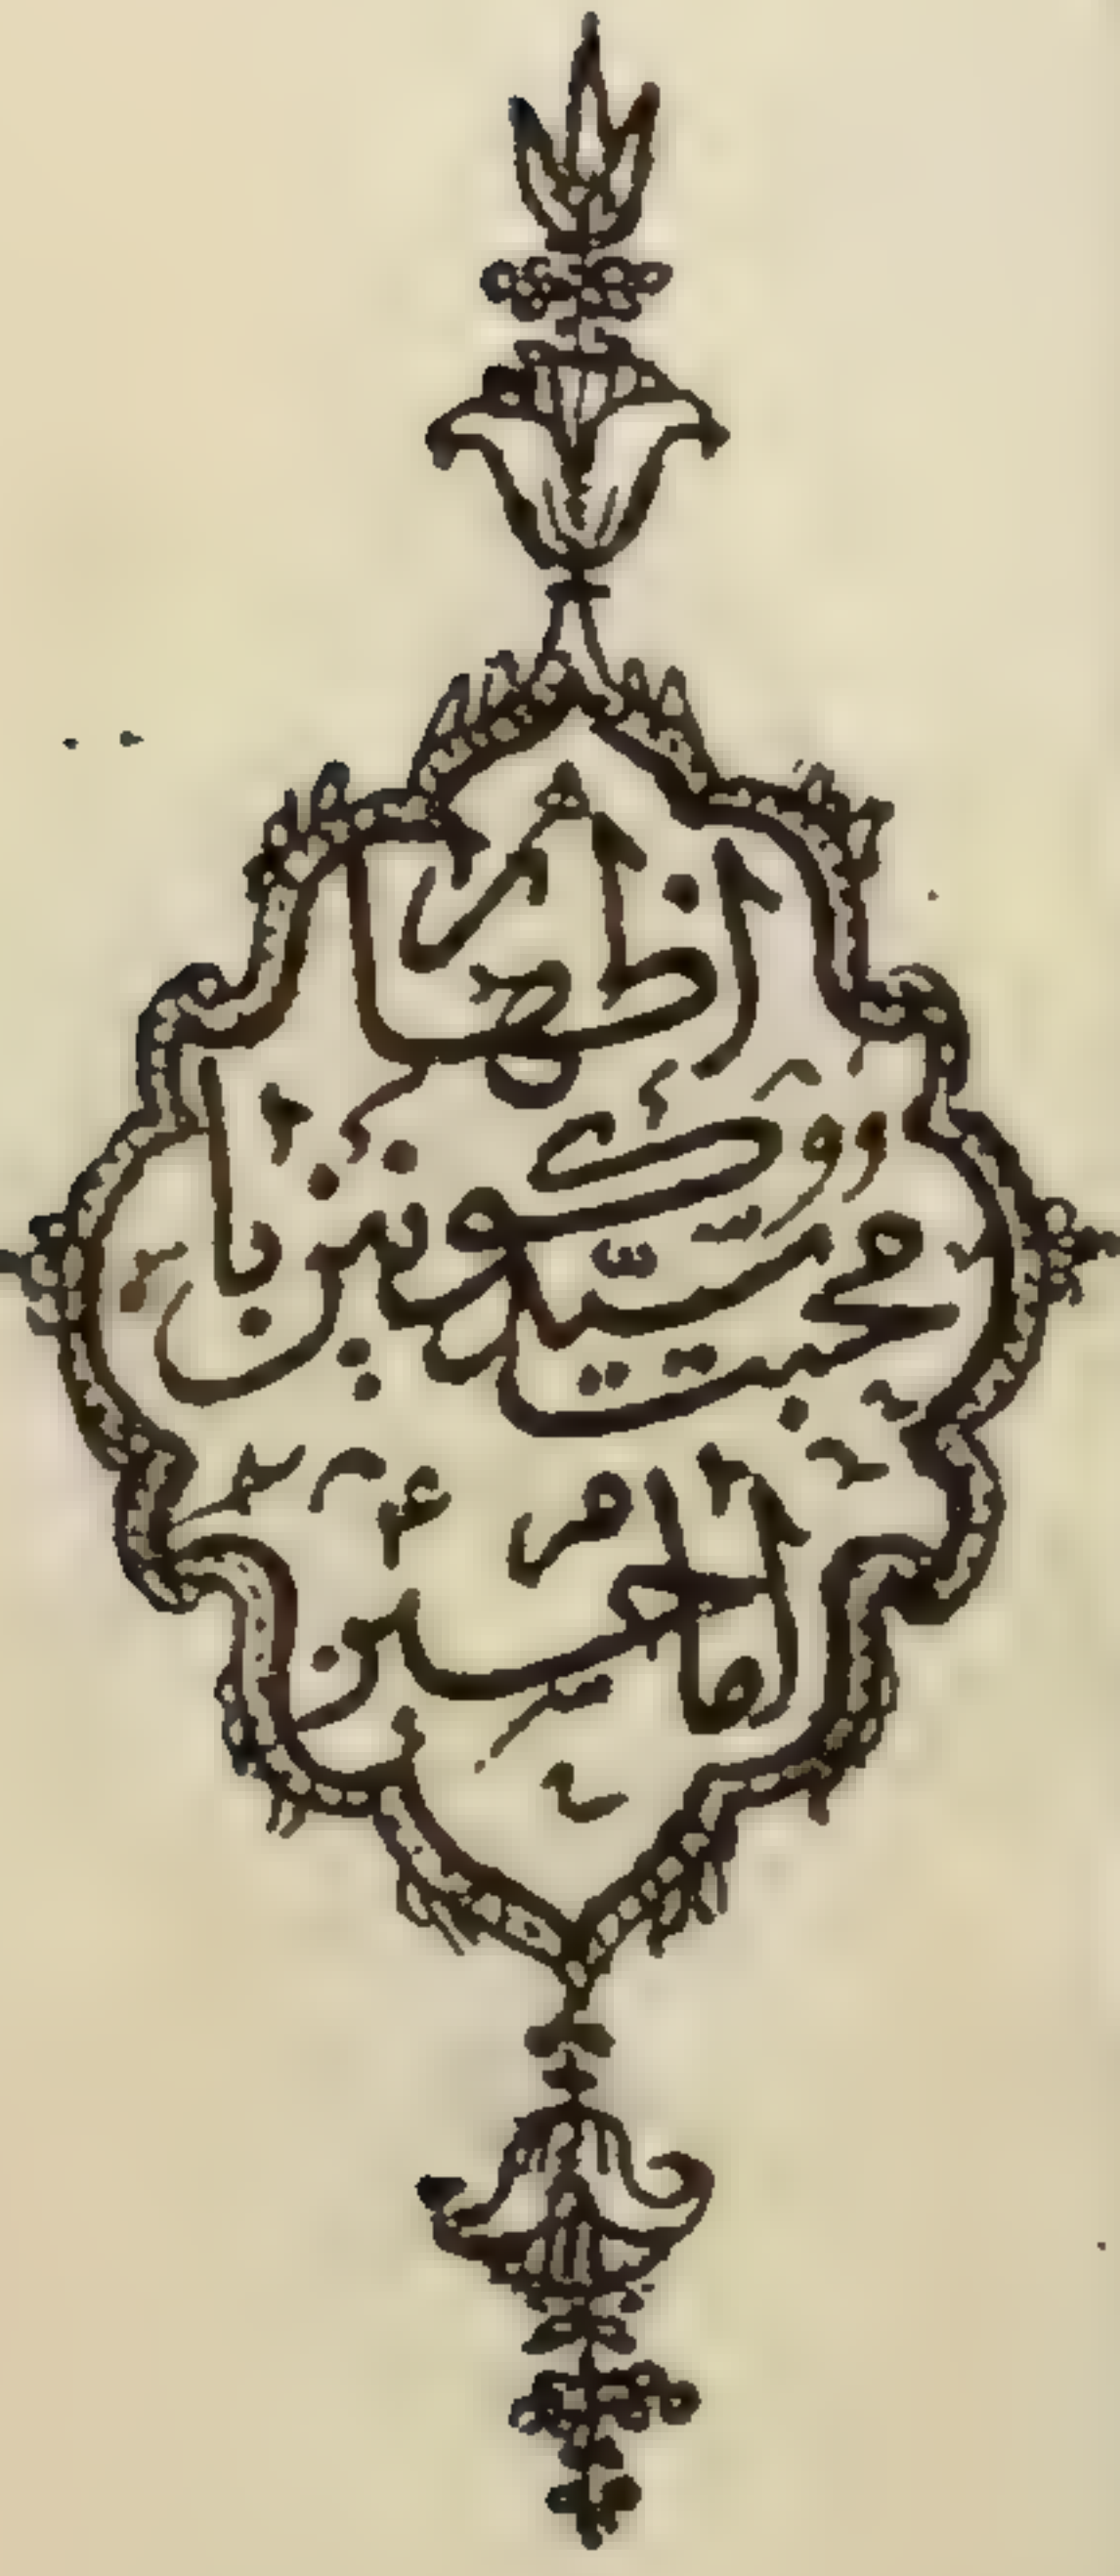 اظهار
محبت سید کونین با
امام حسین